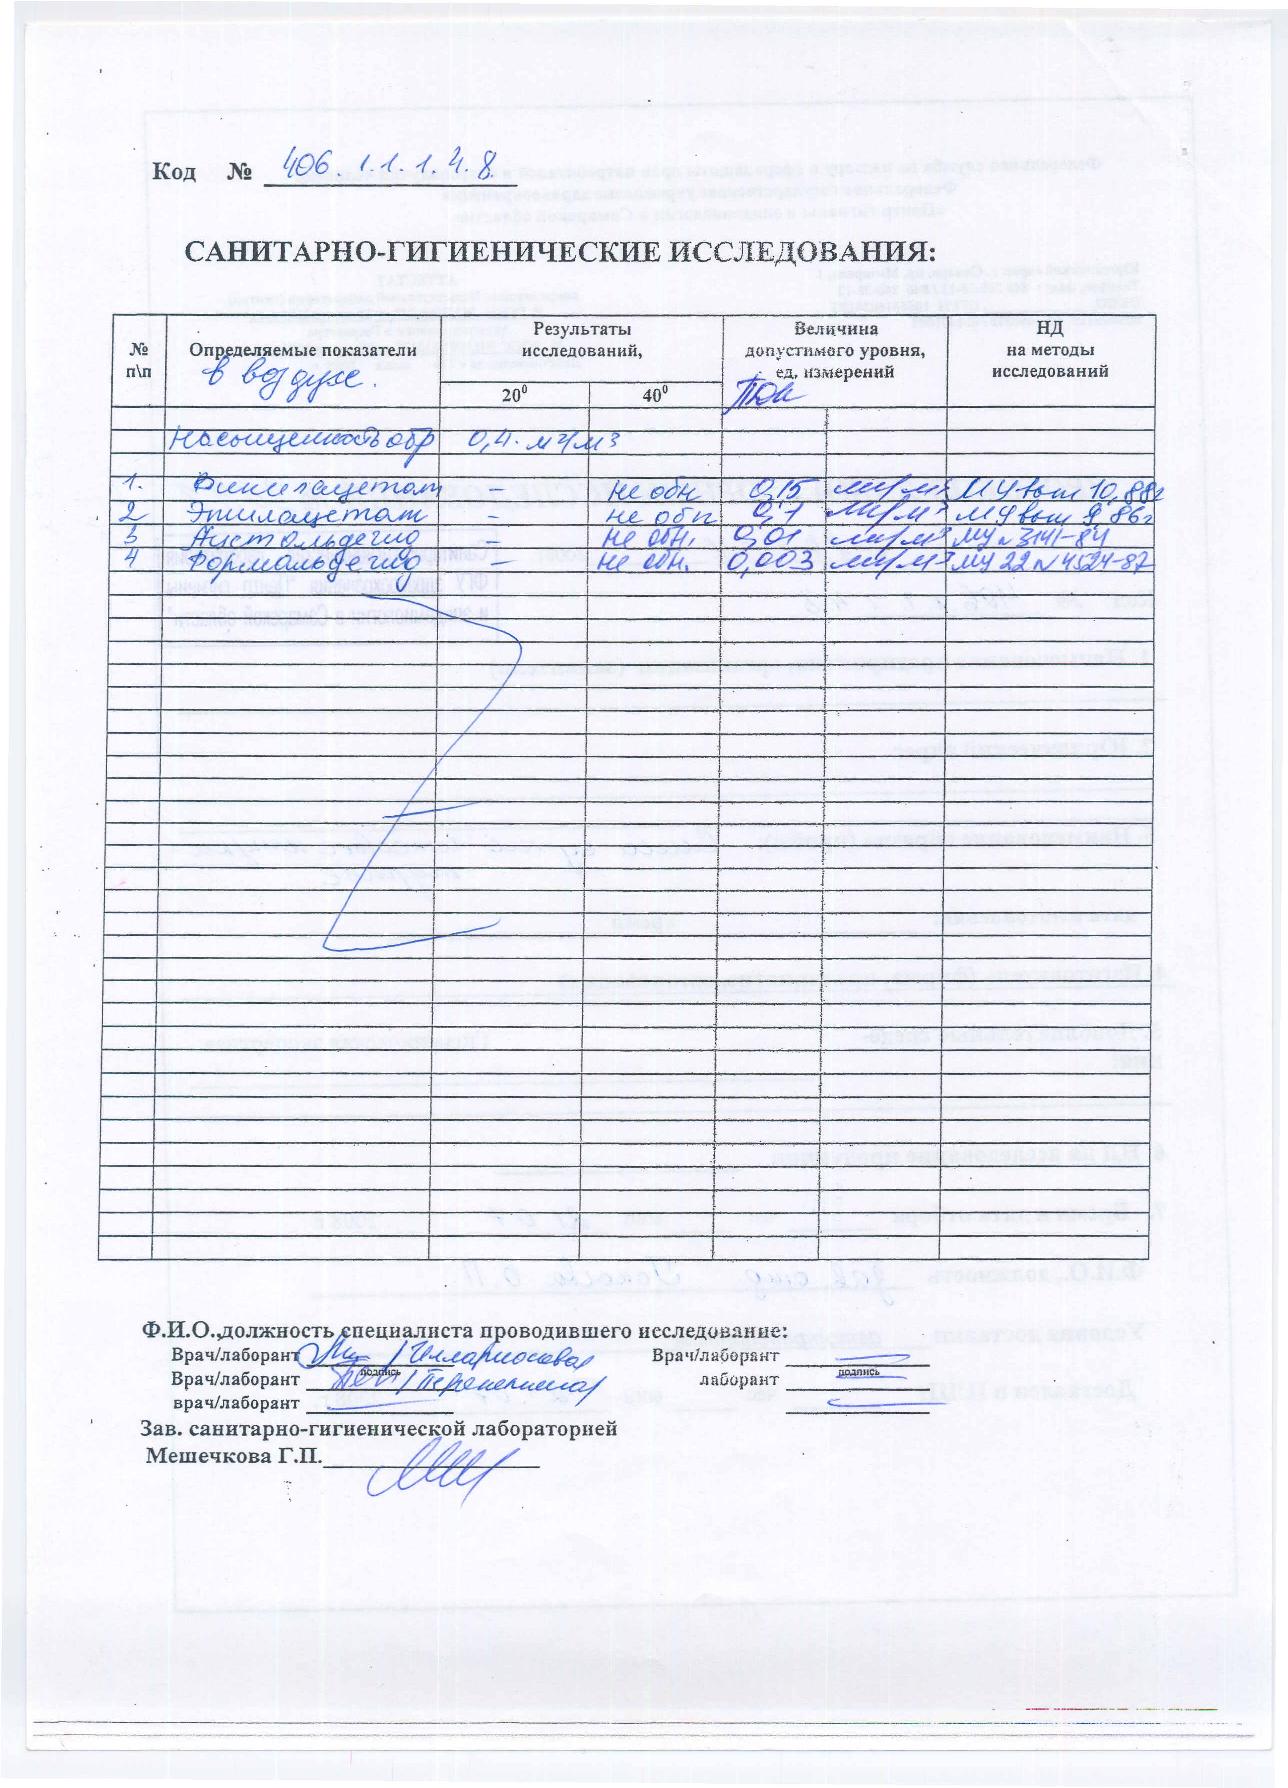 Код № 406.1.1.1.4.8.
САНИТАРНО-ГИГИЕНИЧЕСКИЕ ИССЛЕДОВАНИЯ:
№ п\п Определяемые показатели в воздухе. Результаты исследований, 20⁰ 40⁰ Величина допустимого уровня, ед, измерений НД на методы исследований
Насыщенность обр 0,4 м²/м³
1. Винилацетат – не обн 0,15 мг/м³ МУ вып 10.88г
2 Этилацетат – не обн 0,1 мг/м³ МУ вып 9.86г
3 – не обн. 0,01 мг/м³ МУ № 3141-84
4 Формальдегид – не обн. 0,003 мг/м³ МУ 22 № 4524-87
Ф.И.О.,должность специалиста проводившего исследование:
Врач/лаборант Врач/лаборант
подпись подпись
Врач/лаборант лаборант
врач/лаборант
Зав. санитарно-гигиенической лабораторией
Мешечкова Г.П.